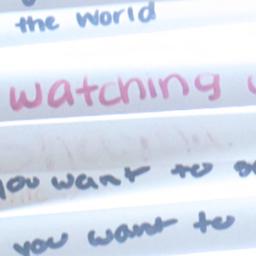 the world
watching
you want to
you want to